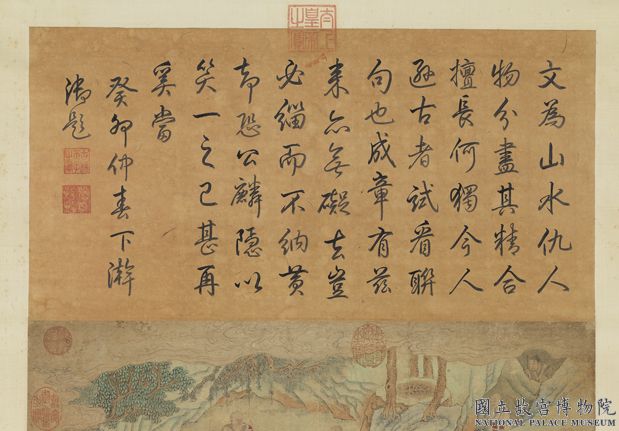 文為山水仇人
物分盡其精合
擅長何獨今人
遜古者試看聯
句也成章有茲
来亦無礙去豈
必緇而不納黄
却恐公麟隱以
笑一之已甚再
奚當
癸卯仲春下澣
御題
太上皇帝之寶
國立故宮博物院
NATIONAL PALACE MUSEUM